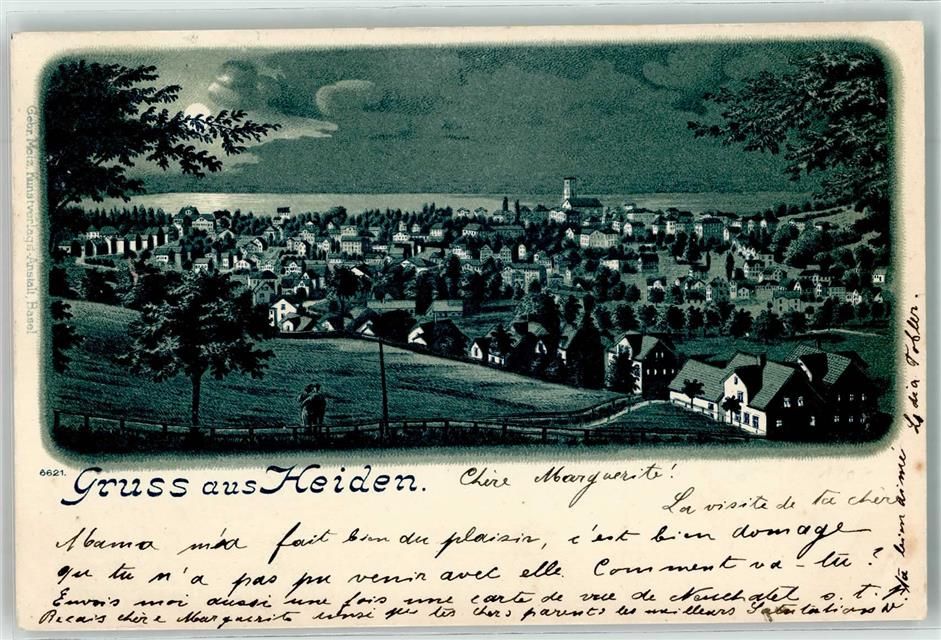 Geor. Metz, Kunstverlags-Anstalt, Basel
6621.
Gruss aus Heiden.
Chère Marguerite!
La visite de ta chère
Mama m'a fait bien du plaisir, c'est bien domage
qu tu n'a pas pu venir avec elle. Comment va-tu?
Envois moi aussi une fois une carte de vue de Neuchatel s. t. p.
Recois chère Marguerite ainsi que tes chers parents les meilleurs Salutations d
Ta bien aimé
Lydia Tobler.